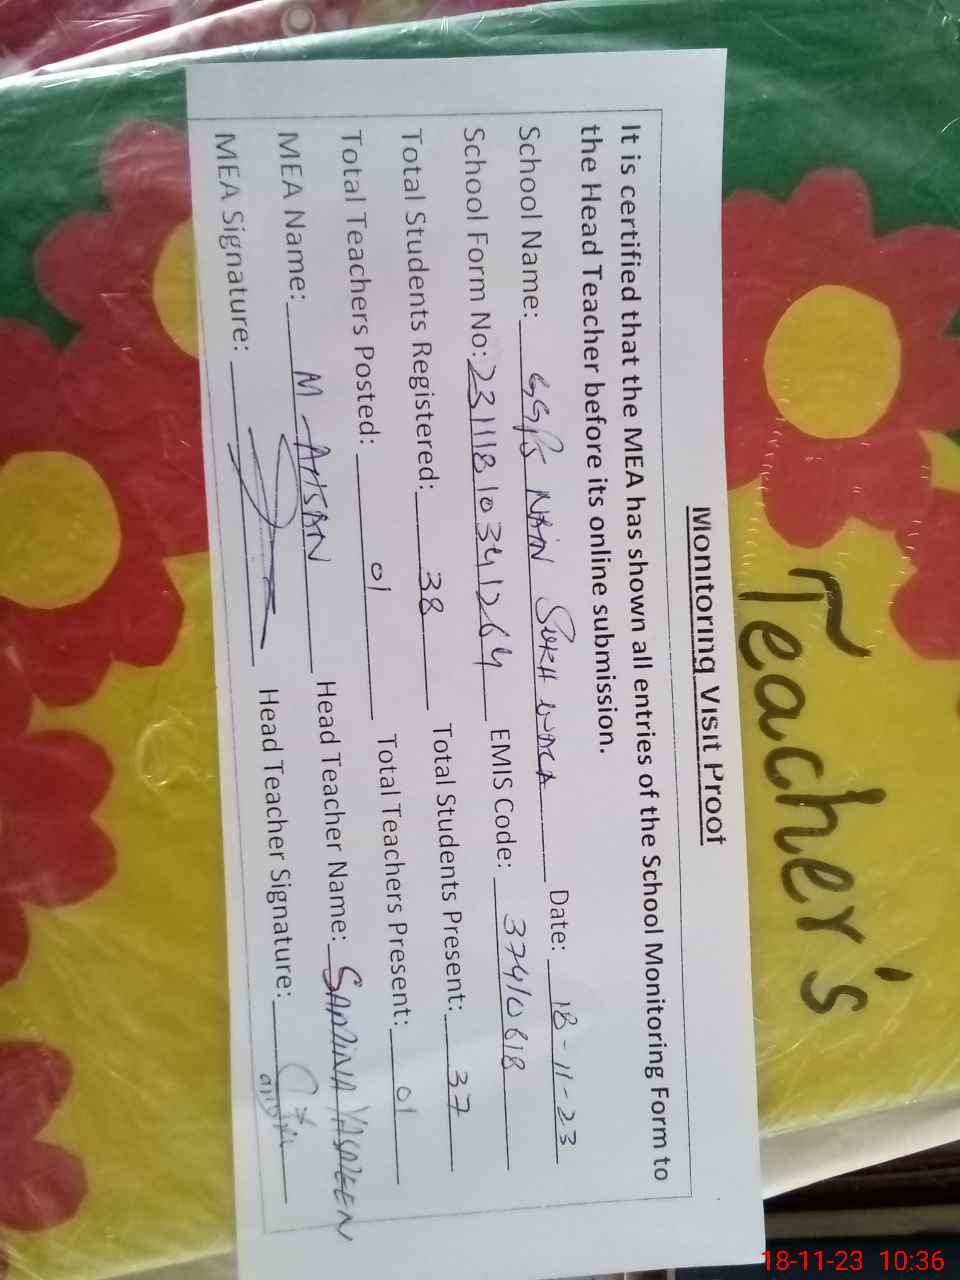 Teacher's
Monitoring Visit Proof
It is certified that the MEA has shown all entries of the School Monitoring Form to
the Head Teacher before its online submission.
School Name: GGPS NAIN SUKH WALA Date: 18-11-23
School Form No: 23111810341264 EMIS Code: 37410618
Total Students Registered: 38 Total Students Present: 37
Total Teachers Posted: 01 Total Teachers Present: 01
MEA Name: M-AHSAN Head Teacher Name: SADINA YASMEEN
MEA Signature: Head Teacher Signature:
18-11-23 10:36